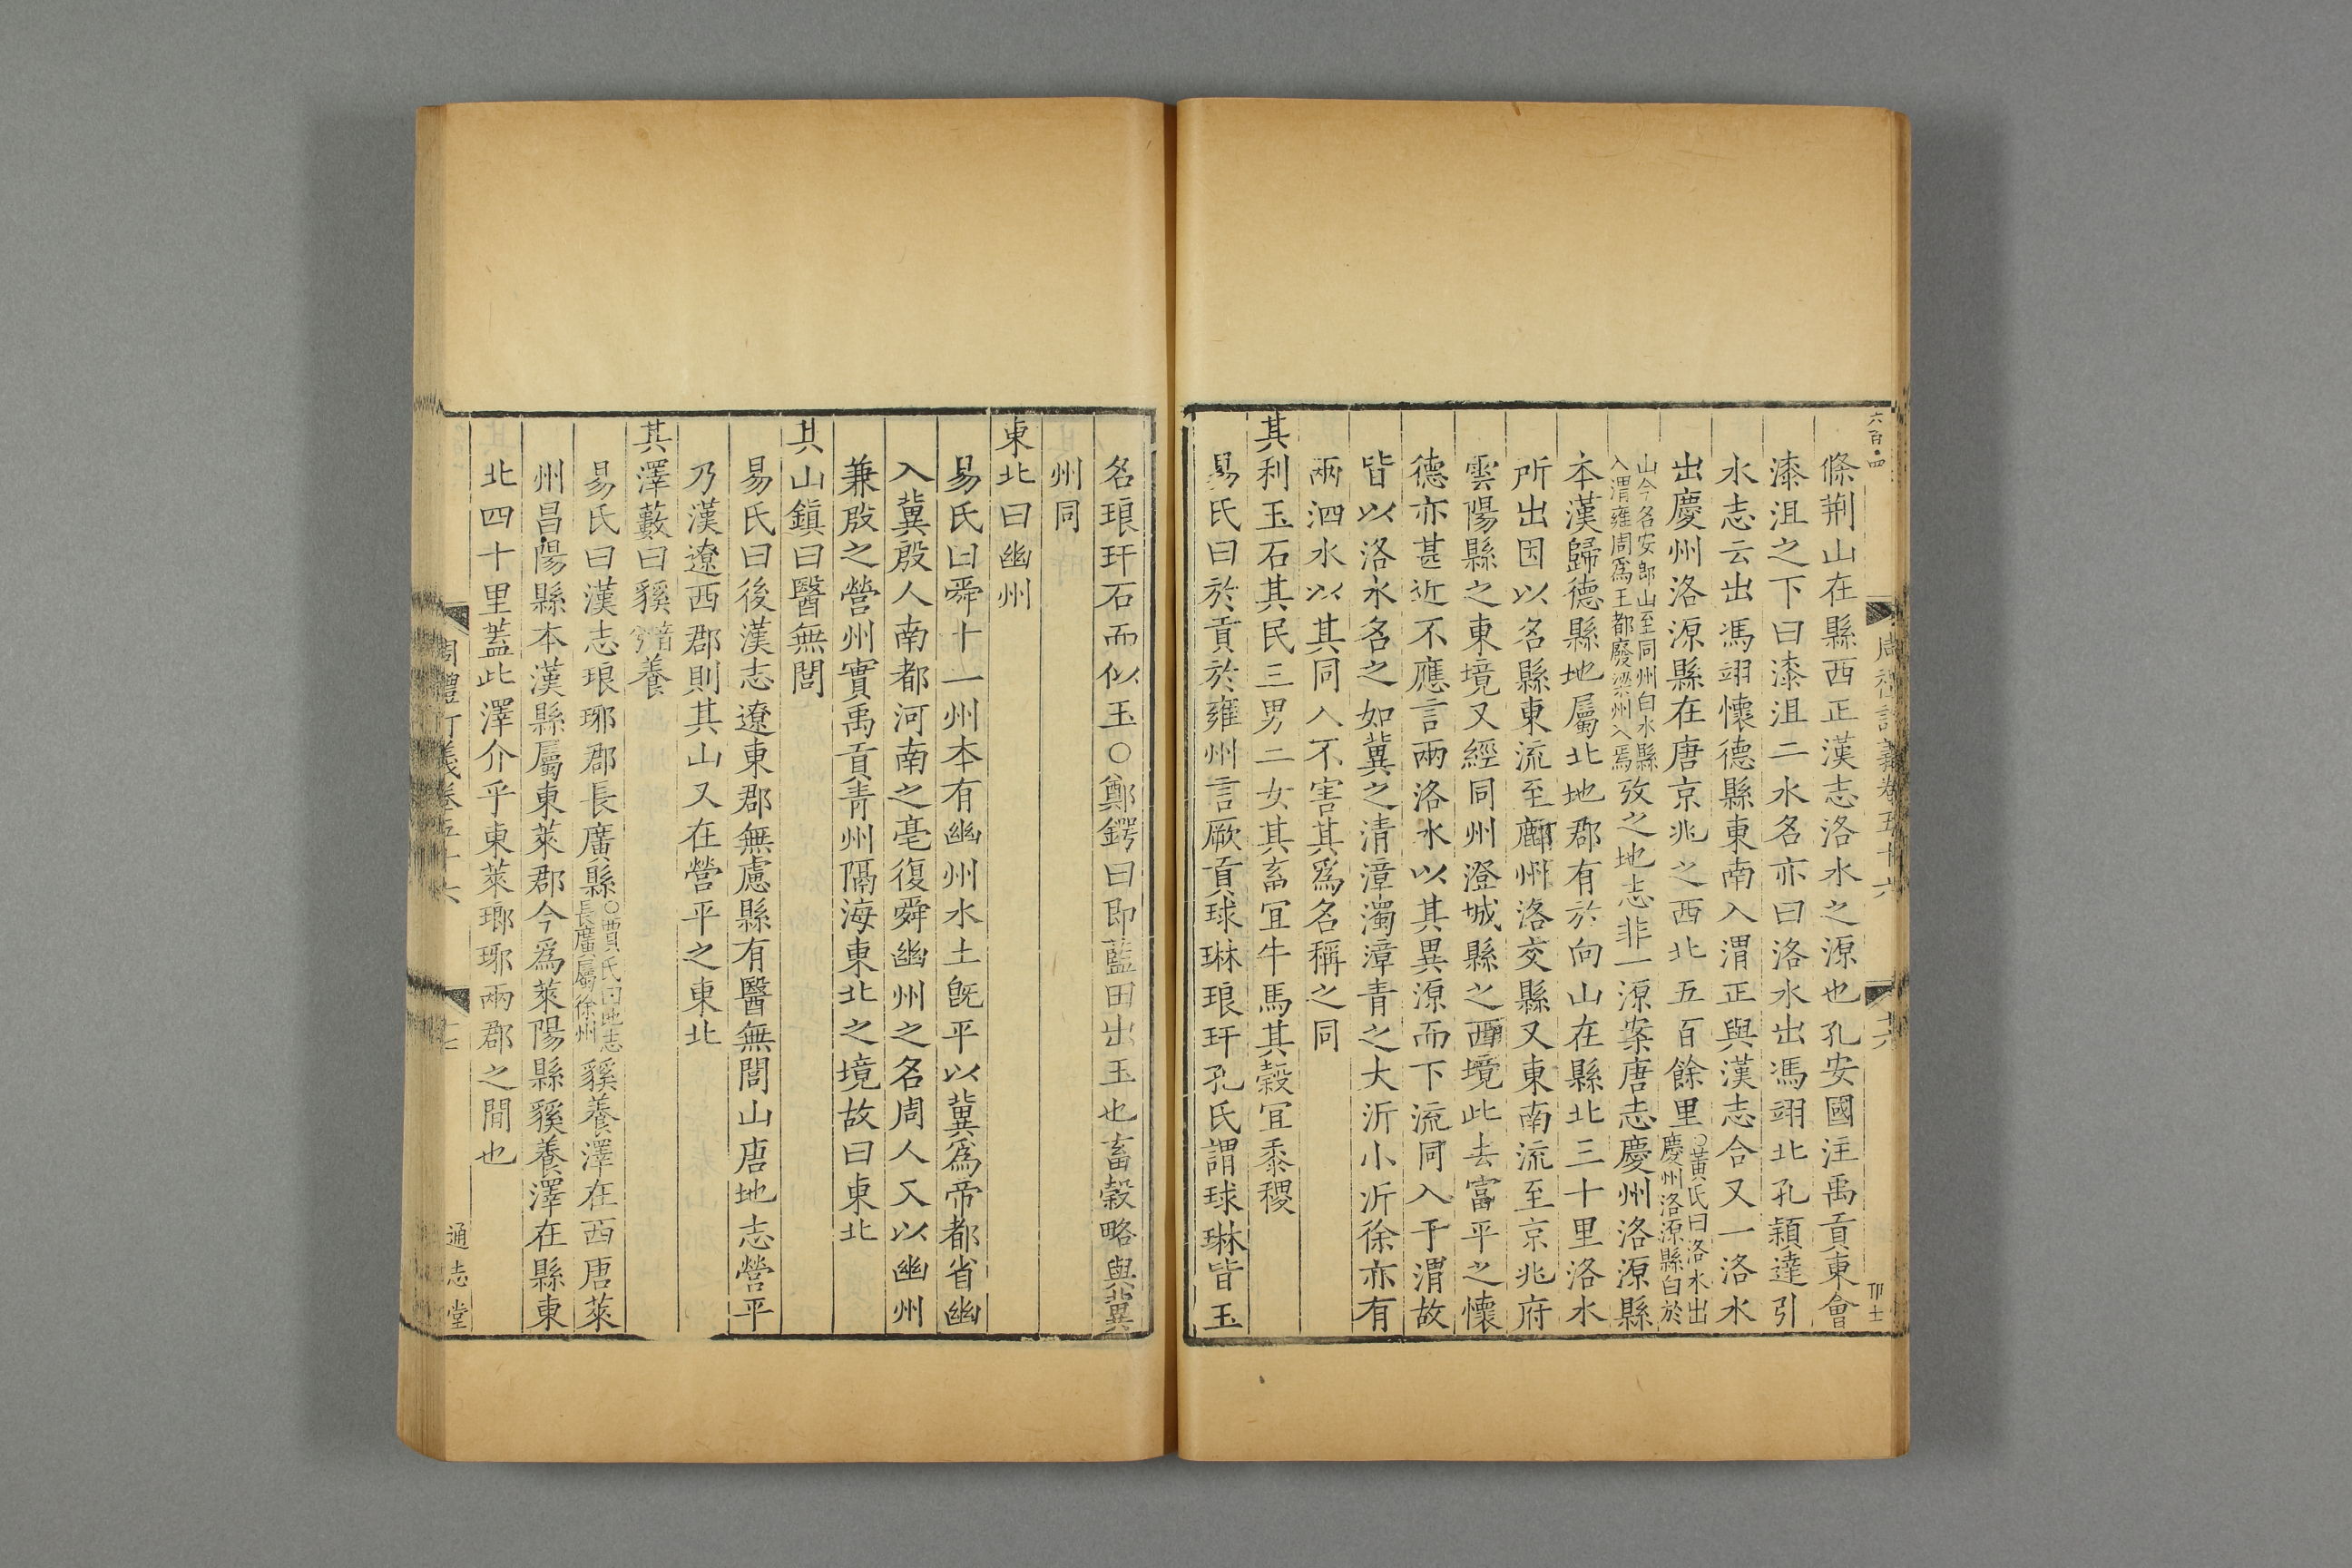 六百四
周禮訂義卷五十六
十六
條荆山在縣西正漢志洛水之源也孔安國注禹貢東會
漆沮之下曰漆沮二水名亦曰洛水出馮翊北孔穎達引
水志云出馮翊懷德縣東南入渭正與漢志合又一洛水
出慶州洛源縣在唐京兆之西北五百餘里○黃氏曰洛水出慶州洛源縣白於
山今名安郎山至同州白水縣入渭雍周爲王都廢梁州入焉攷之地志非一源案唐志慶州洛源縣
本漢歸德縣地屬北地郡有於向山在縣北三十里洛水
所出因以名縣東流至鄜州洛交縣又東南流至京兆府
雲陽縣之東境又經同州澄城縣之西境此去富平之懷
德亦甚近不應言兩洛水以其異源而下流同入于渭故
皆以洛水名之如冀之清漳濁漳青之大沂小沂徐亦有
兩泗水以其同入不害其爲名稱之同
其利玉石其民三男二女其畜宜牛馬其穀宜黍稷
易氏曰於貢於雍州言厥貢球琳琅玕孔氏謂球琳皆玉
名琅玕石而似玉○鄭鍔曰即藍田出玉也畜穀略與冀
州同
東北曰幽州
易氏曰舜十一州本有幽州水土旣平以冀爲帝都省幽
入冀殷人南都河南之亳復舜幽州之名周人又以幽州
兼殷之營州實禹貢青州隔海東北之境故曰東北
其山鎮曰醫無閭
易氏曰後漢志遼東郡無慮縣有醫無閭山唐地志營平
乃漢遼西郡則其山又在營平之東北
其澤藪曰貕音兮養
易氏曰漢志琅琊郡長廣縣○賈氏曰地志長廣屬徐州貕養澤在西唐萊
州昌陽縣本漢縣屬東萊郡今爲萊陽縣貕養澤在縣東
北四十里蓋此澤介乎東萊瑯琊兩郡之間也
周禮訂義卷五十六
十七
通志堂